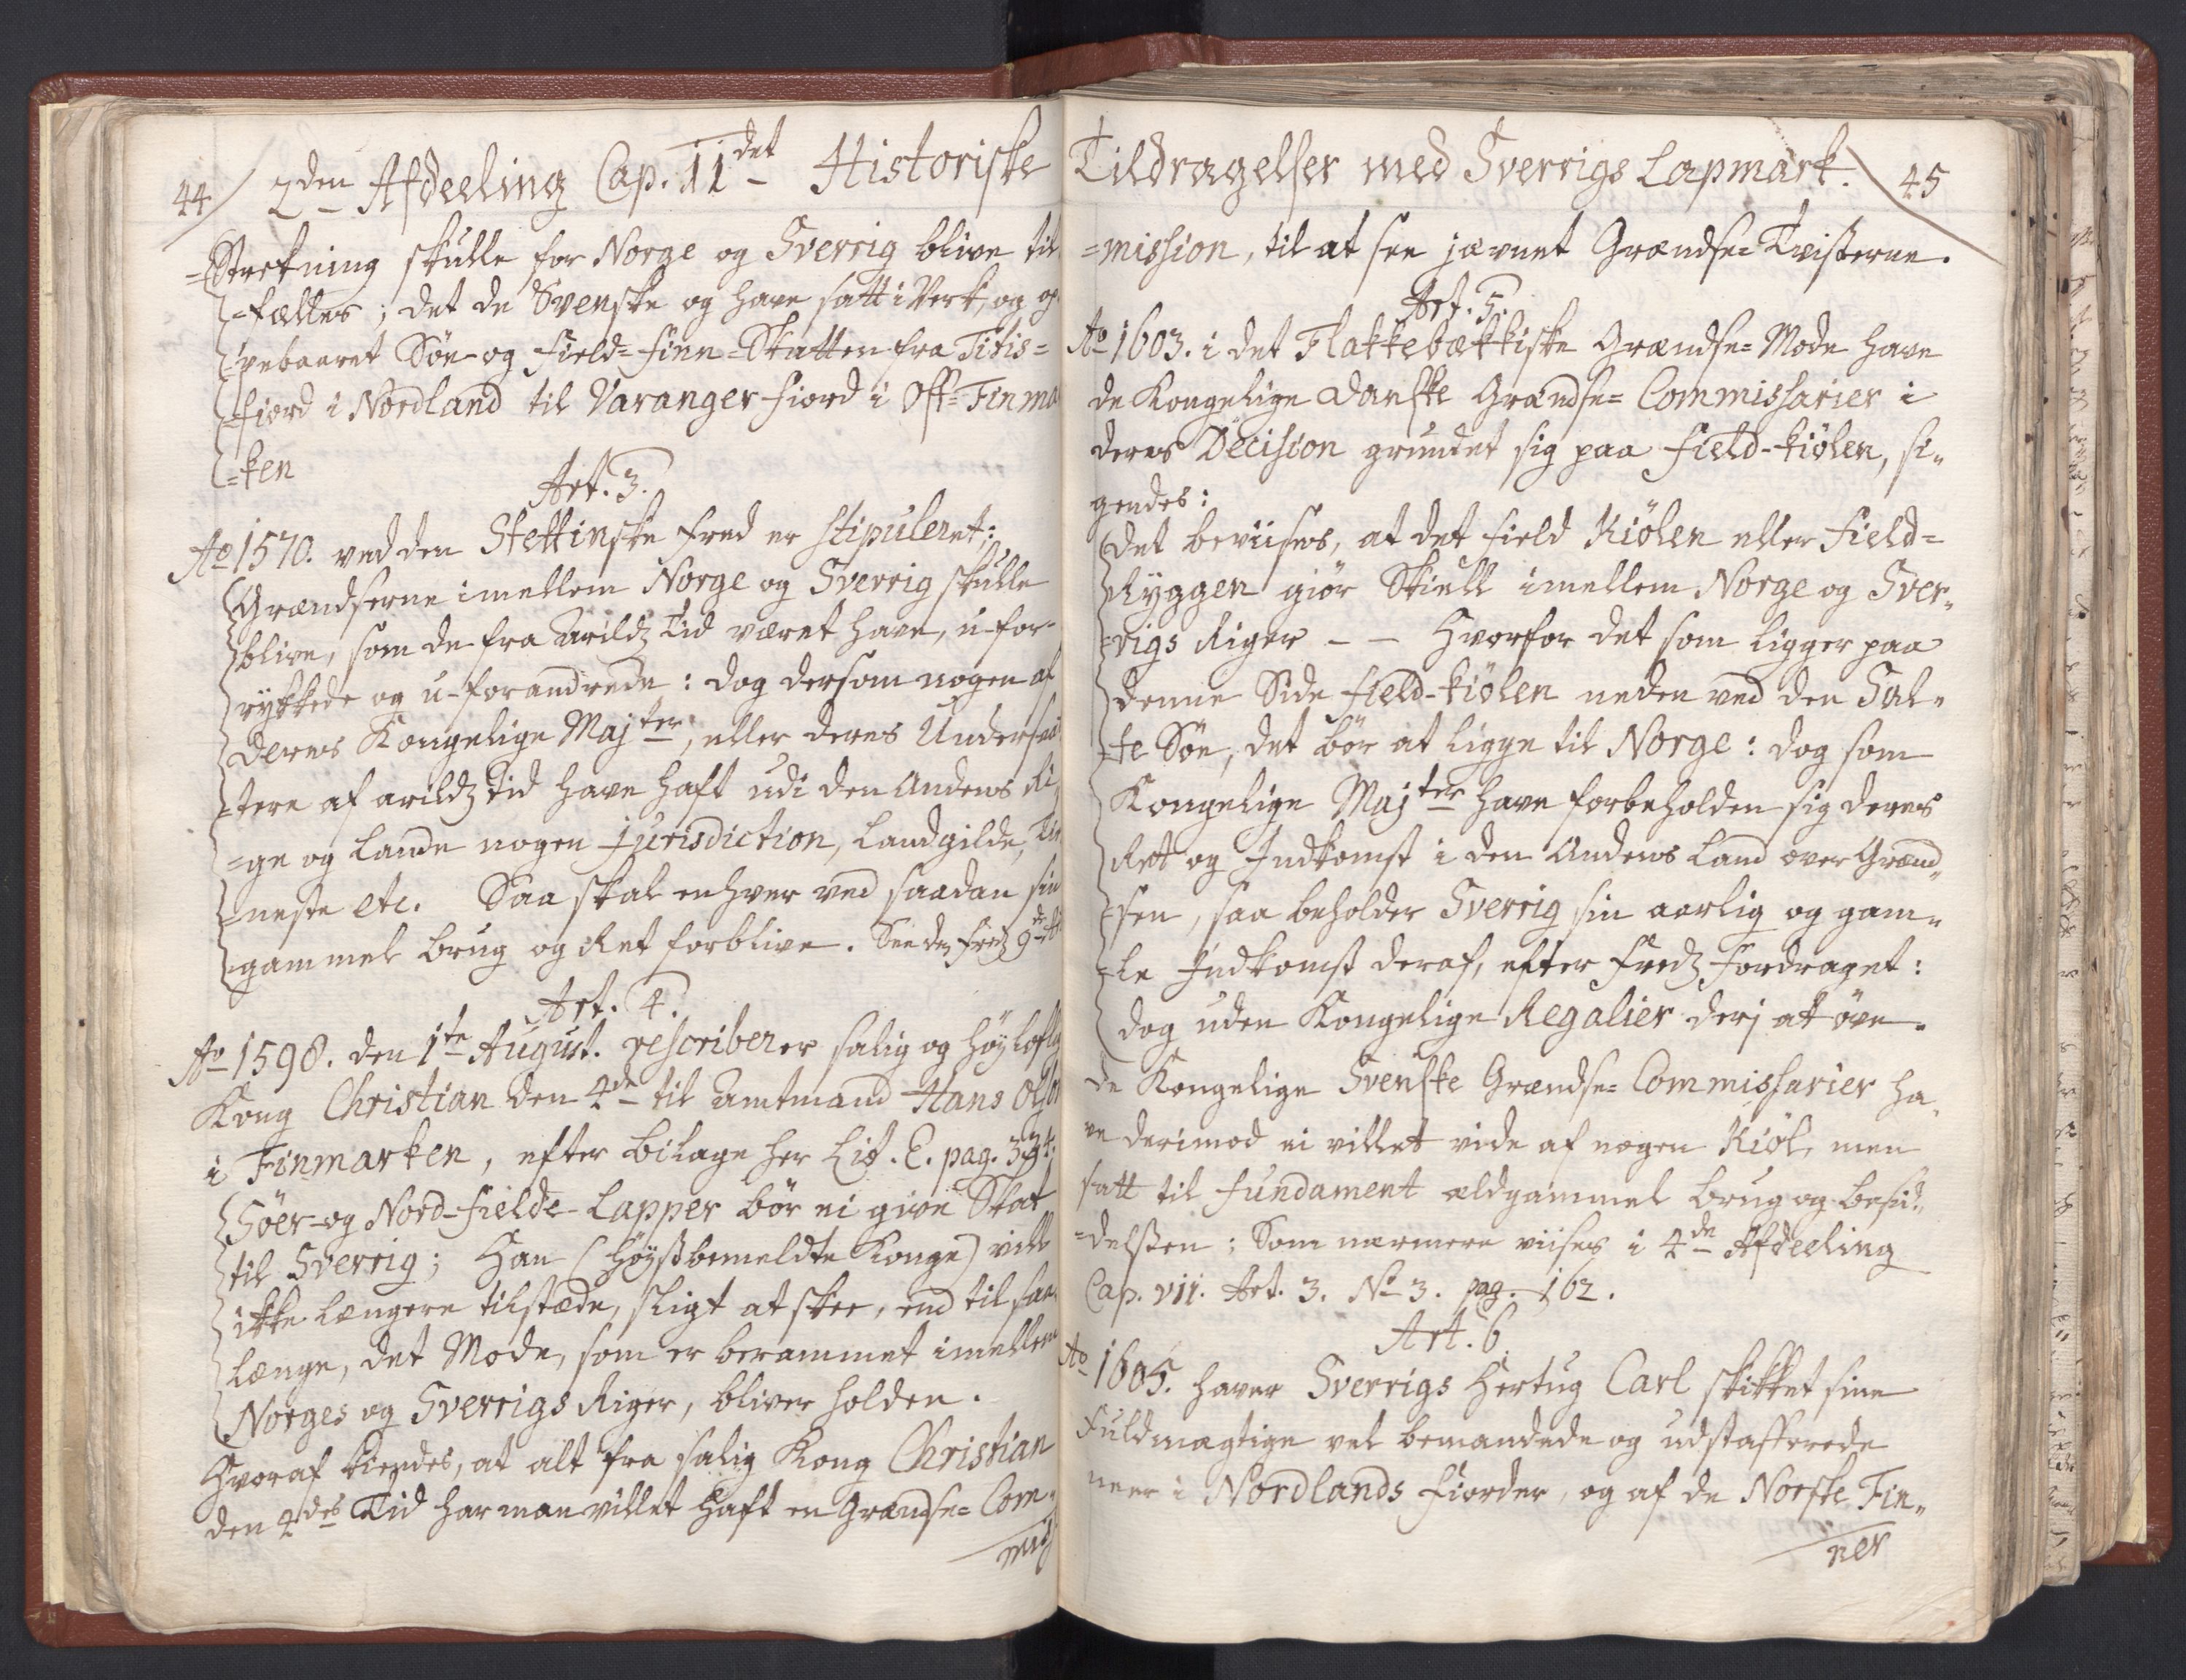 44
2den Afdeeling Cap. 11det Historiske
=Strekning skulle for Norge og Sverrig blive til
=fælles; det de Svenske og have satt i Verk, og op
=pebaaret Søe- og Field=Finn=Skatten fra Titis=
=fiord i Nordland til Varanger fiord i Øst=Finmar
=ken
Art. 3.
Ao 1570. ved den Stettinske Fred er stipuleret;
Grændserne imellem Norge og Sverrig skulle
blive, som de fra Arildz Tid været have, u-for-
rykkede og u-forandrede: dog dersom nogen af
deres Kongelige Majter, eller deres Undersaa
=tere af arildz tid have haft udi den Andens Ri
=ge og Lande nogen Jurisdiction, Landgilde, Tie
=neste etc. Saa skal enhver ved saadan sin
=gammel brug og Ret forblive. See dez Fredz 9de Art
Art. 4.
Ao 1598. den 1te August. rescriberer salig og høyloflig
Kong Christian den 4de til Amtmand Hans Olson
i Finmarken, efter bilage her Lit. E. pag. 394.
Søer- og Nord-Fielde-Lapper bør ei give Skat
til Sverrig; Han (høystbemeldte Konge) vill
ikke længere tilstæde, sligt at skee, end til saa
længe, det Mode, som er berammet imellem
Norges og Sverrigs Riger, bliver holden.
Hvoraf kiendes, at alt fra salig Kong Christian
den 4des Tid har man villet haft en Grændse=Com=
mis
Tildragelser med Sverrigs Lapmark.
45
=mission, til at see jævnet Grændse=Tvisterne.
Art. 5.
Ao 1603. i det Flakkebækkiske Grændse=Mode have
de Kongelige Danske Grændse=Commissarier i
deres Decision grundet sig paa Field-kiølen, si=
gendes:
Det beviises, at det Field Kiølen eller Field=
Ryggen giør Skiell imellem Norge og Sver=
=rigs Riger - - Hvorfor det som ligger paa
denne Side Field-kiølen neden ved den Sal=
=te Søe, det bør at ligge til Norge: dog som
Kongelige Majter have forbeholden sig deres
Ret og Indkomst i den Andens Land over Grænd=
=sen, saa beholder Sverrig sin aarlig og gam=
=le Indkomst deraf, efter Fredz Fordraget:
dog uden Kongelige Regalier derj at øve.
De Kongelige Svenske Grændse=Commissarier ha=
ve derimod ei villet vide af nogen Kiøl, men
satt til Fundament ældgammel brug og besid=
=delsen; Som nærmere viises i 4de Afdeeling
Cap. VII. Art. 3. No 3. pag. 162.
Art. 6.
Ao 1605. haver Sverrigs Hertug Carl skikket sine
Fuldmægtige vel bemandede og udstafferede
neer i Nordlands Fiorder, og af de Norske Fin=
ner